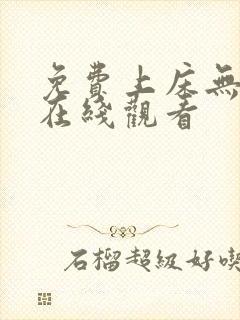 免費上床無
在綫觀看
石榴超級好喫